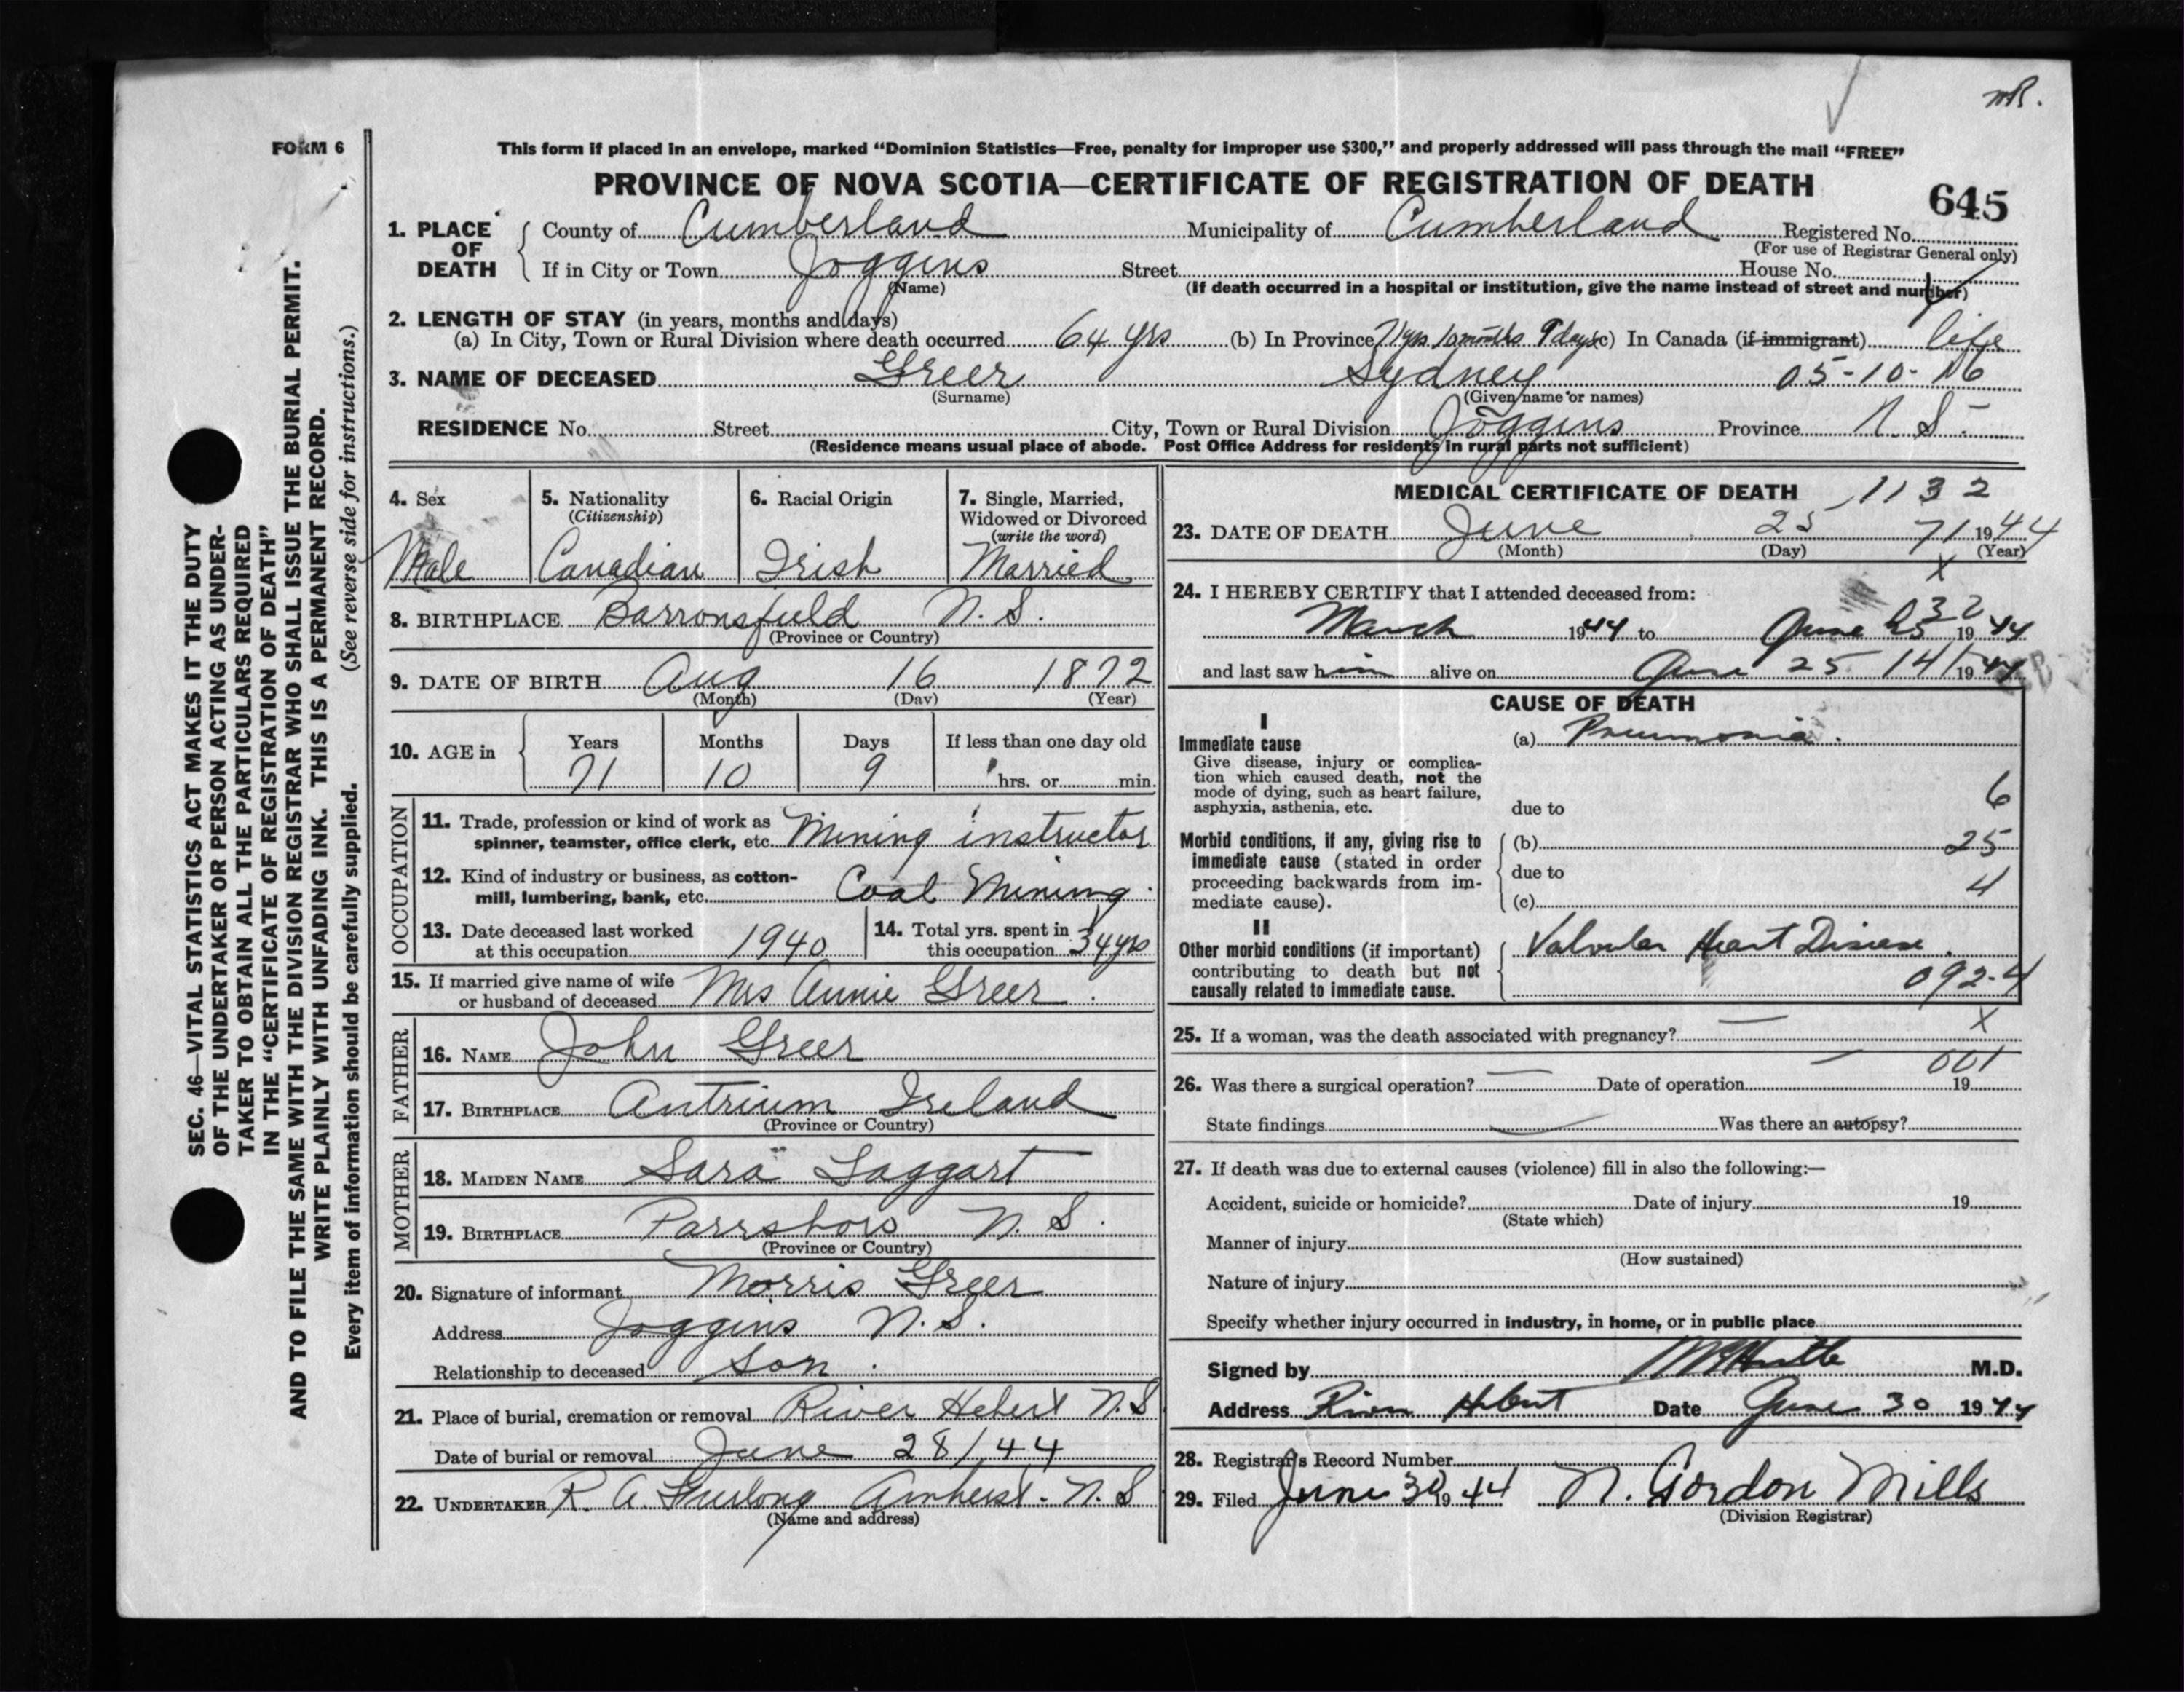 mR.
FORM 6
This form if placed in an envelope, marked "Dominion Statistics—Free, penalty for improper use $300," and properly addressed will pass through the mail "FREE"
PROVINCE OF NOVA SCOTIA—CERTIFICATE OF REGISTRATION OF DEATH
645
1. PLACE OF DEATH County of Cumberland Municipality of Cumberland Registered No.
(For use of Registrar General only)
If in City or Town Joggins Street House No.
(Name) (If death occurred in a hospital or institution, give the name instead of street and number)
2. LENGTH OF STAY (in years, months and days)
(a) In City, Town or Rural Division where death occurred 64 yrs (b) In Province 71 yrs 10 months 9 days (c) In Canada (if immigrant) life
3. NAME OF DECEASED Greer Sydney 05-10-16
(Surname) (Given name or names)
RESIDENCE No. Street City, Town or Rural Division Joggins Province N. S.
(Residence means usual place of abode. Post Office Address for residents in rural parts not sufficient)
4. Sex Male
5. Nationality (Citizenship) Canadian
6. Racial Origin Irish
7. Single, Married, Widowed or Divorced (write the word) Married
8. BIRTHPLACE Barronsfield N. S.
(Province or Country)
9. DATE OF BIRTH Aug 16 1872
(Month) (Day) (Year)
10. AGE in Years Months Days If less than one day old
71 10 9 hrs. or min.
OCCUPATION
11. Trade, profession or kind of work as spinner, teamster, office clerk, etc. Mining instructor
12. Kind of industry or business, as cotton-mill, lumbering, bank, etc. Coal Mining.
13. Date deceased last worked at this occupation 1940
14. Total yrs. spent in this occupation 34 yrs
15. If married give name of wife or husband of deceased Mrs Annie Greer.
FATHER
16. NAME John Greer
17. BIRTHPLACE Antrium Ireland
(Province or Country)
MOTHER
18. MAIDEN NAME Sara Taggart
19. BIRTHPLACE Parrsboro N. S.
(Province or Country)
20. Signature of informant Morris Greer
Address Joggins N. S.
Relationship to deceased Son.
21. Place of burial, cremation or removal River Hebert N. S
Date of burial or removal June 28/44
22. UNDERTAKER R. A. Furlong Amherst. N. S
(Name and address)
MEDICAL CERTIFICATE OF DEATH 1132
23. DATE OF DEATH June 25 71 1944
(Month) (Day) (Year)
X
24. I HEREBY CERTIFY that I attended deceased from:
032
March 1944 to June 25 1944
and last saw him alive on June 25 141 1944
CAUSE OF DEATH
I
Immediate cause (a) Pneumonia.
Give disease, injury or complication which caused death, not the mode of dying, such as heart failure, asphyxia, asthenia, etc.
due to 6
Morbid conditions, if any, giving rise to immediate cause (stated in order proceeding backwards from immediate cause).
(b) 25
due to 4
(c)
II
Other morbid conditions (if important) contributing to death but not causally related to immediate cause.
Valvular Heart Disease.
092-4
X
25. If a woman, was the death associated with pregnancy? —
001
26. Was there a surgical operation? — Date of operation — 19
State findings Was there an autopsy?
27. If death was due to external causes (violence) fill in also the following:—
Accident, suicide or homicide? Date of injury 19
(State which)
Manner of injury
(How sustained)
Nature of injury
Specify whether injury occurred in industry, in home, or in public place
Signed by M.D.
Address River Hebert Date June 30 1944
28. Registrar's Record Number
29. Filed June 30 1944 N. Gordon Mills
(Division Registrar)
SEC. 46—VITAL STATISTICS ACT MAKES IT THE DUTY
OF THE UNDERTAKER OR PERSON ACTING AS UNDER-
TAKER TO OBTAIN ALL THE PARTICULARS REQUIRED
IN THE "CERTIFICATE OF REGISTRATION OF DEATH"
AND TO FILE THE SAME WITH THE DIVISION REGISTRAR WHO SHALL ISSUE THE BURIAL PERMIT.
WRITE PLAINLY WITH UNFADING INK. THIS IS A PERMANENT RECORD.
Every item of information should be carefully supplied. (See reverse side for instructions.)